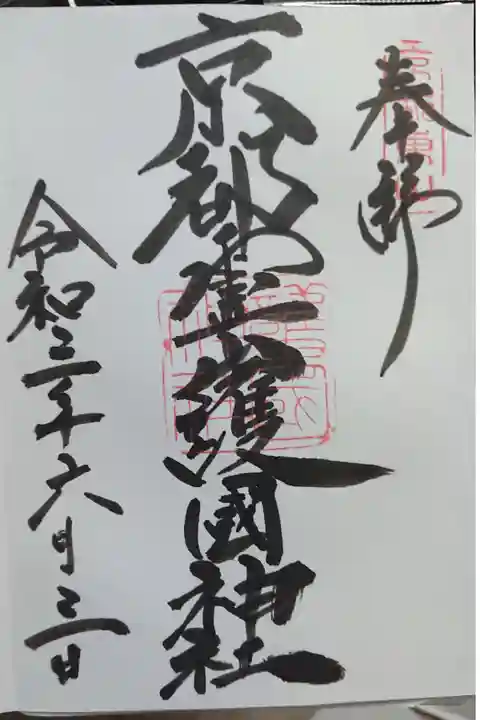 奉拝
京都霊山護國神社
令和三年六月三日